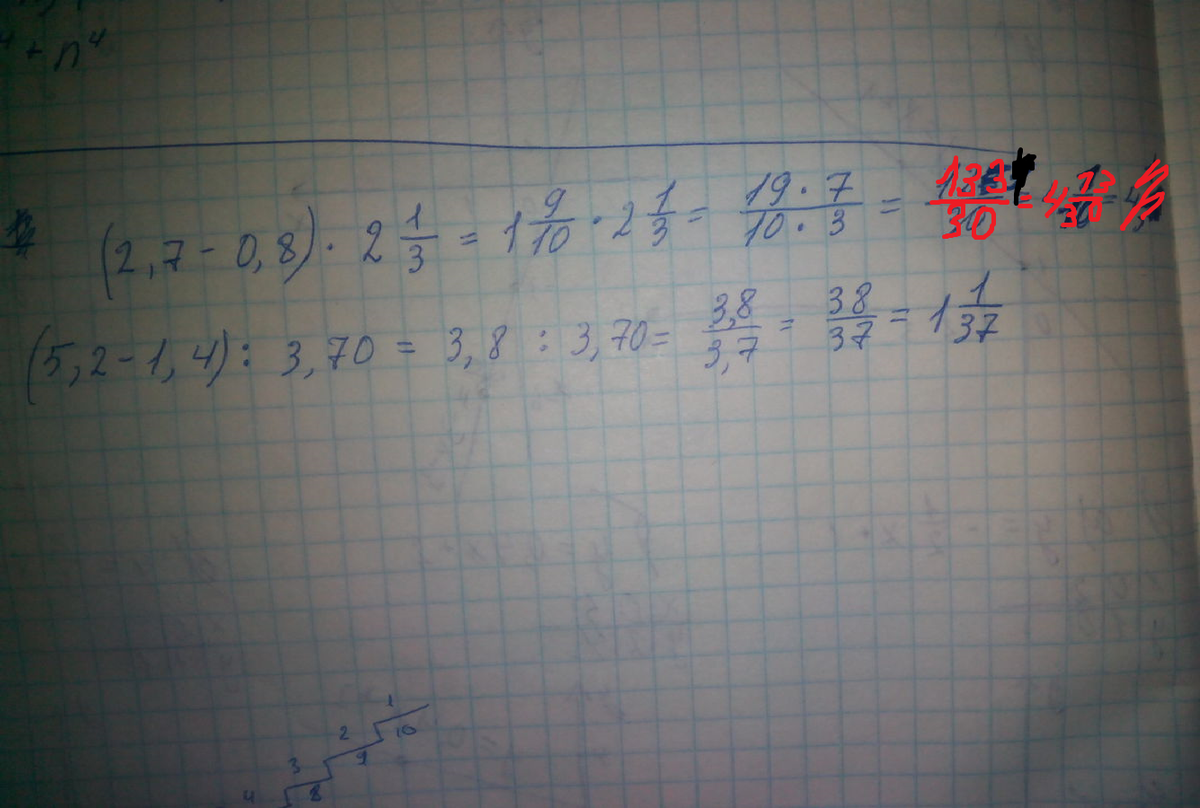 ⁴ + n⁴
(2,7 - 0,8) · 2 1/3 = 1 9/10 · 2 1/3 = 19 · 7/10 · 3 = 133/30 = 4 13/30
(5,2 - 1,4) : 3,70 = 3,8 : 3,70 = 3,8/3,7 = 38/37 = 1 1/37
1
2 10
3 9
4 8